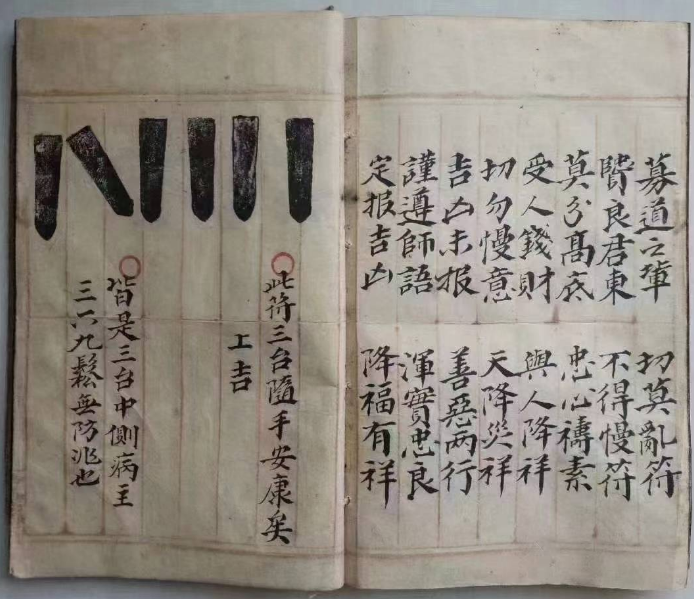 募道之軰 切莫亂符
賢良君東 不得慢符
莫分髙底 忠心禱素
受人錢財 與人降祥
切勿慢意 天降災祥
吉凶未报 善惡两行
謹遵師語 渾實忠良
定报吉凶 降福有祥
此符三台隨手安康矣
工吉
皆是三台中側病主
三六九鬆無防兆也